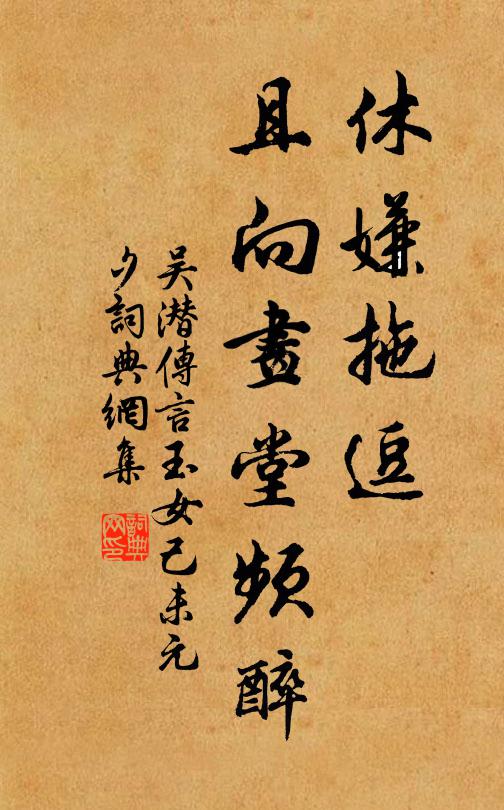 休嫌拖逗
且向畫堂頻醉
吴潜傳言玉女己未元
夕詞典網集
詞典
网印